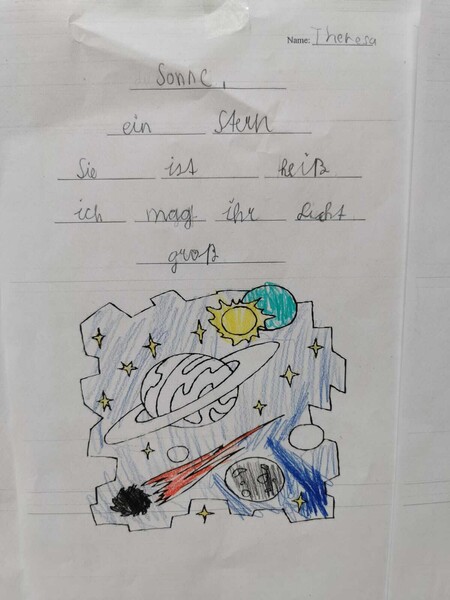 Name: Theresa
Sonne,
ein Stern
Sie ist heiß.
ich mag ihr Licht.
groß